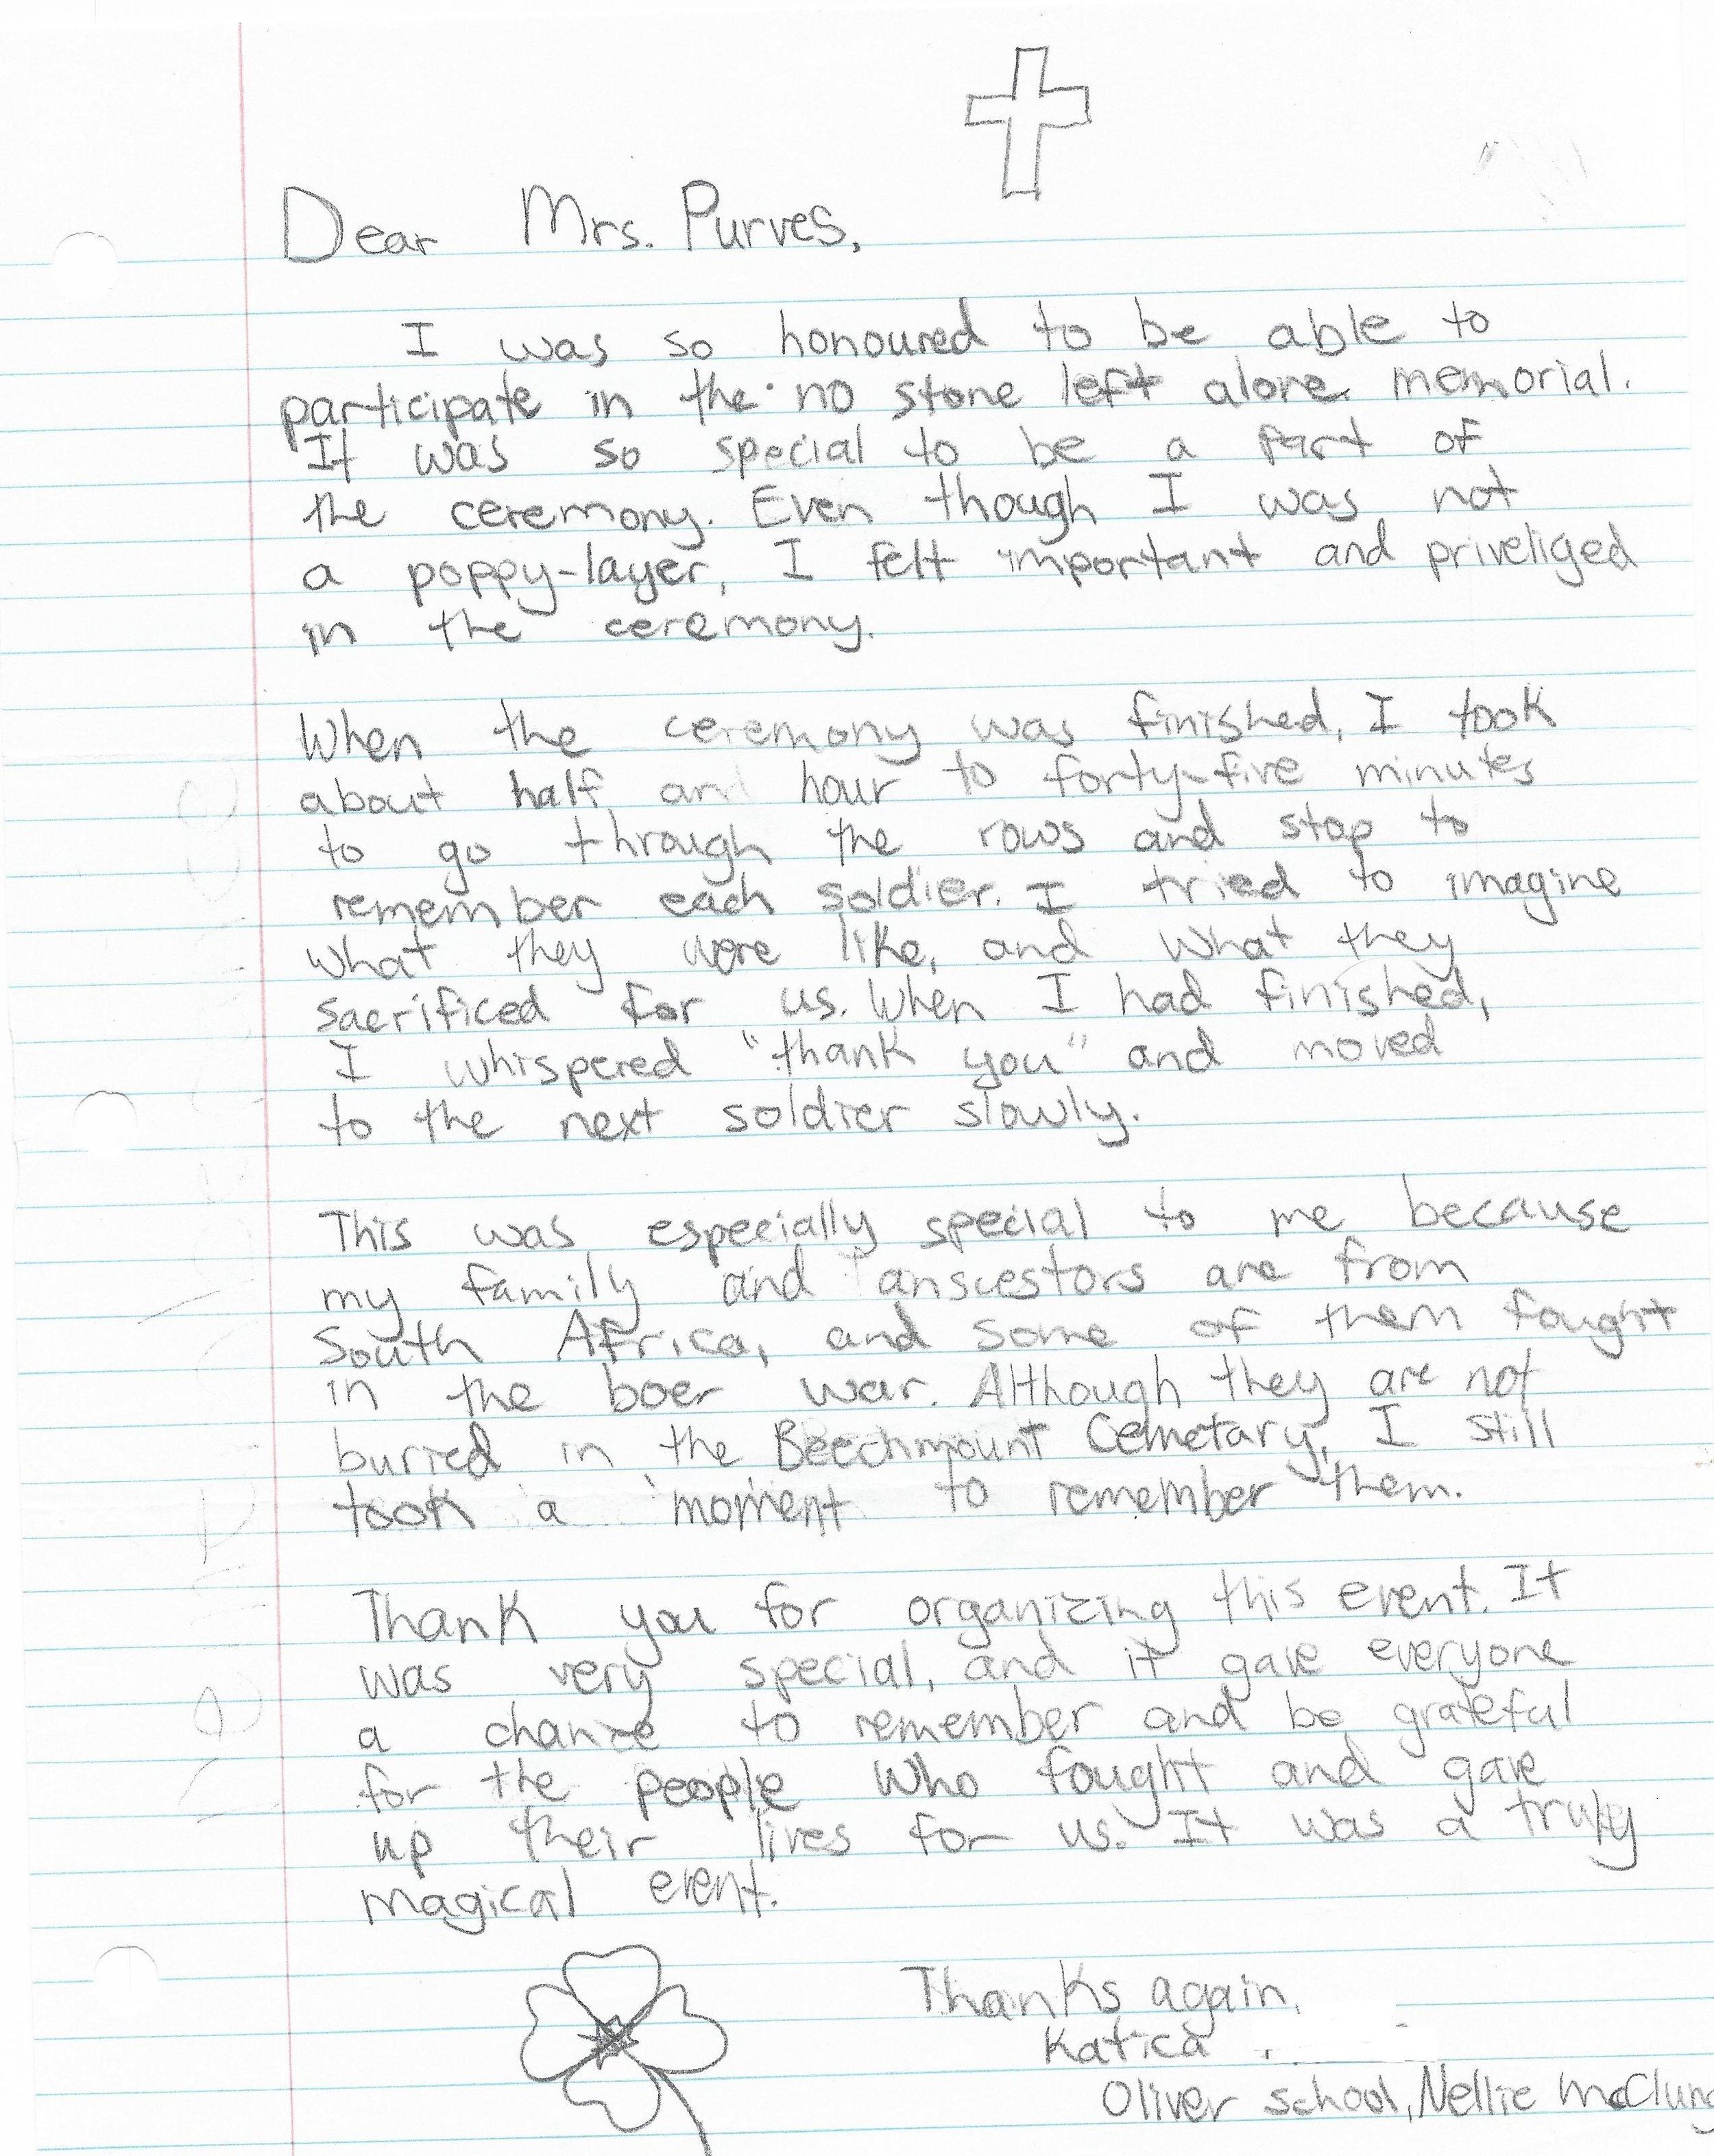 Dear Mrs. Purves,
I was so honoured to be able to
participate in the no stone left alone memorial.
It was so special to be a part of
the ceremony. Even though I was not
a poppy-layer, I felt important and priveliged
in the ceremony.
When the ceremony was finished, I took
about half an hour to forty-five minutes
to go through the rows and stop to
remember each soldier. I tried to imagine
what they were like, and what they
sacrificed for us. When I had finished,
I whispered "thank you" and moved
to the next soldier slowly.
This was especially special to me because
my family and anscestors are from
South Africa, and some of them fought
in the boer war. Although they are not
buried in the Beechmount Cemetary, I still
took a moment to remember them.
Thank you for organizing this event. It
was very special, and it gave everyone
a chance to remember and be grateful
for the people who fought and gave
up their lives for us. It was a truly
magical event.
Thanks again,
Katica
Oliver school, Nellie McClung